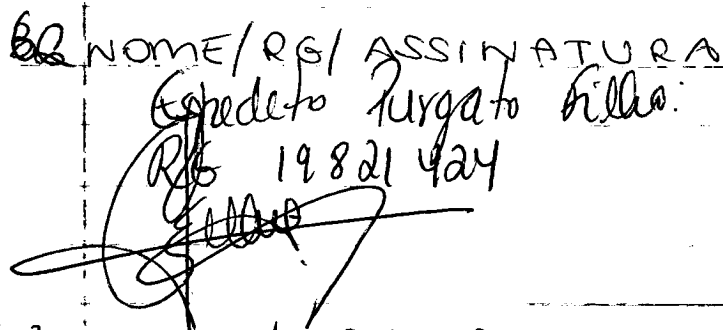 NOME/RG/ASSINATURA
Espedito Purgato Filho.
RG 19821424